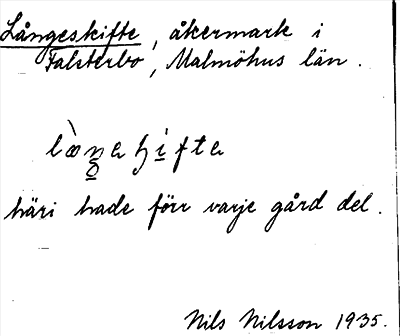 Långeskifte, åkermark i
Falsterbo, Malmöhus län.
häri hade förr varje gård del.
Nils Nilsson 1935.